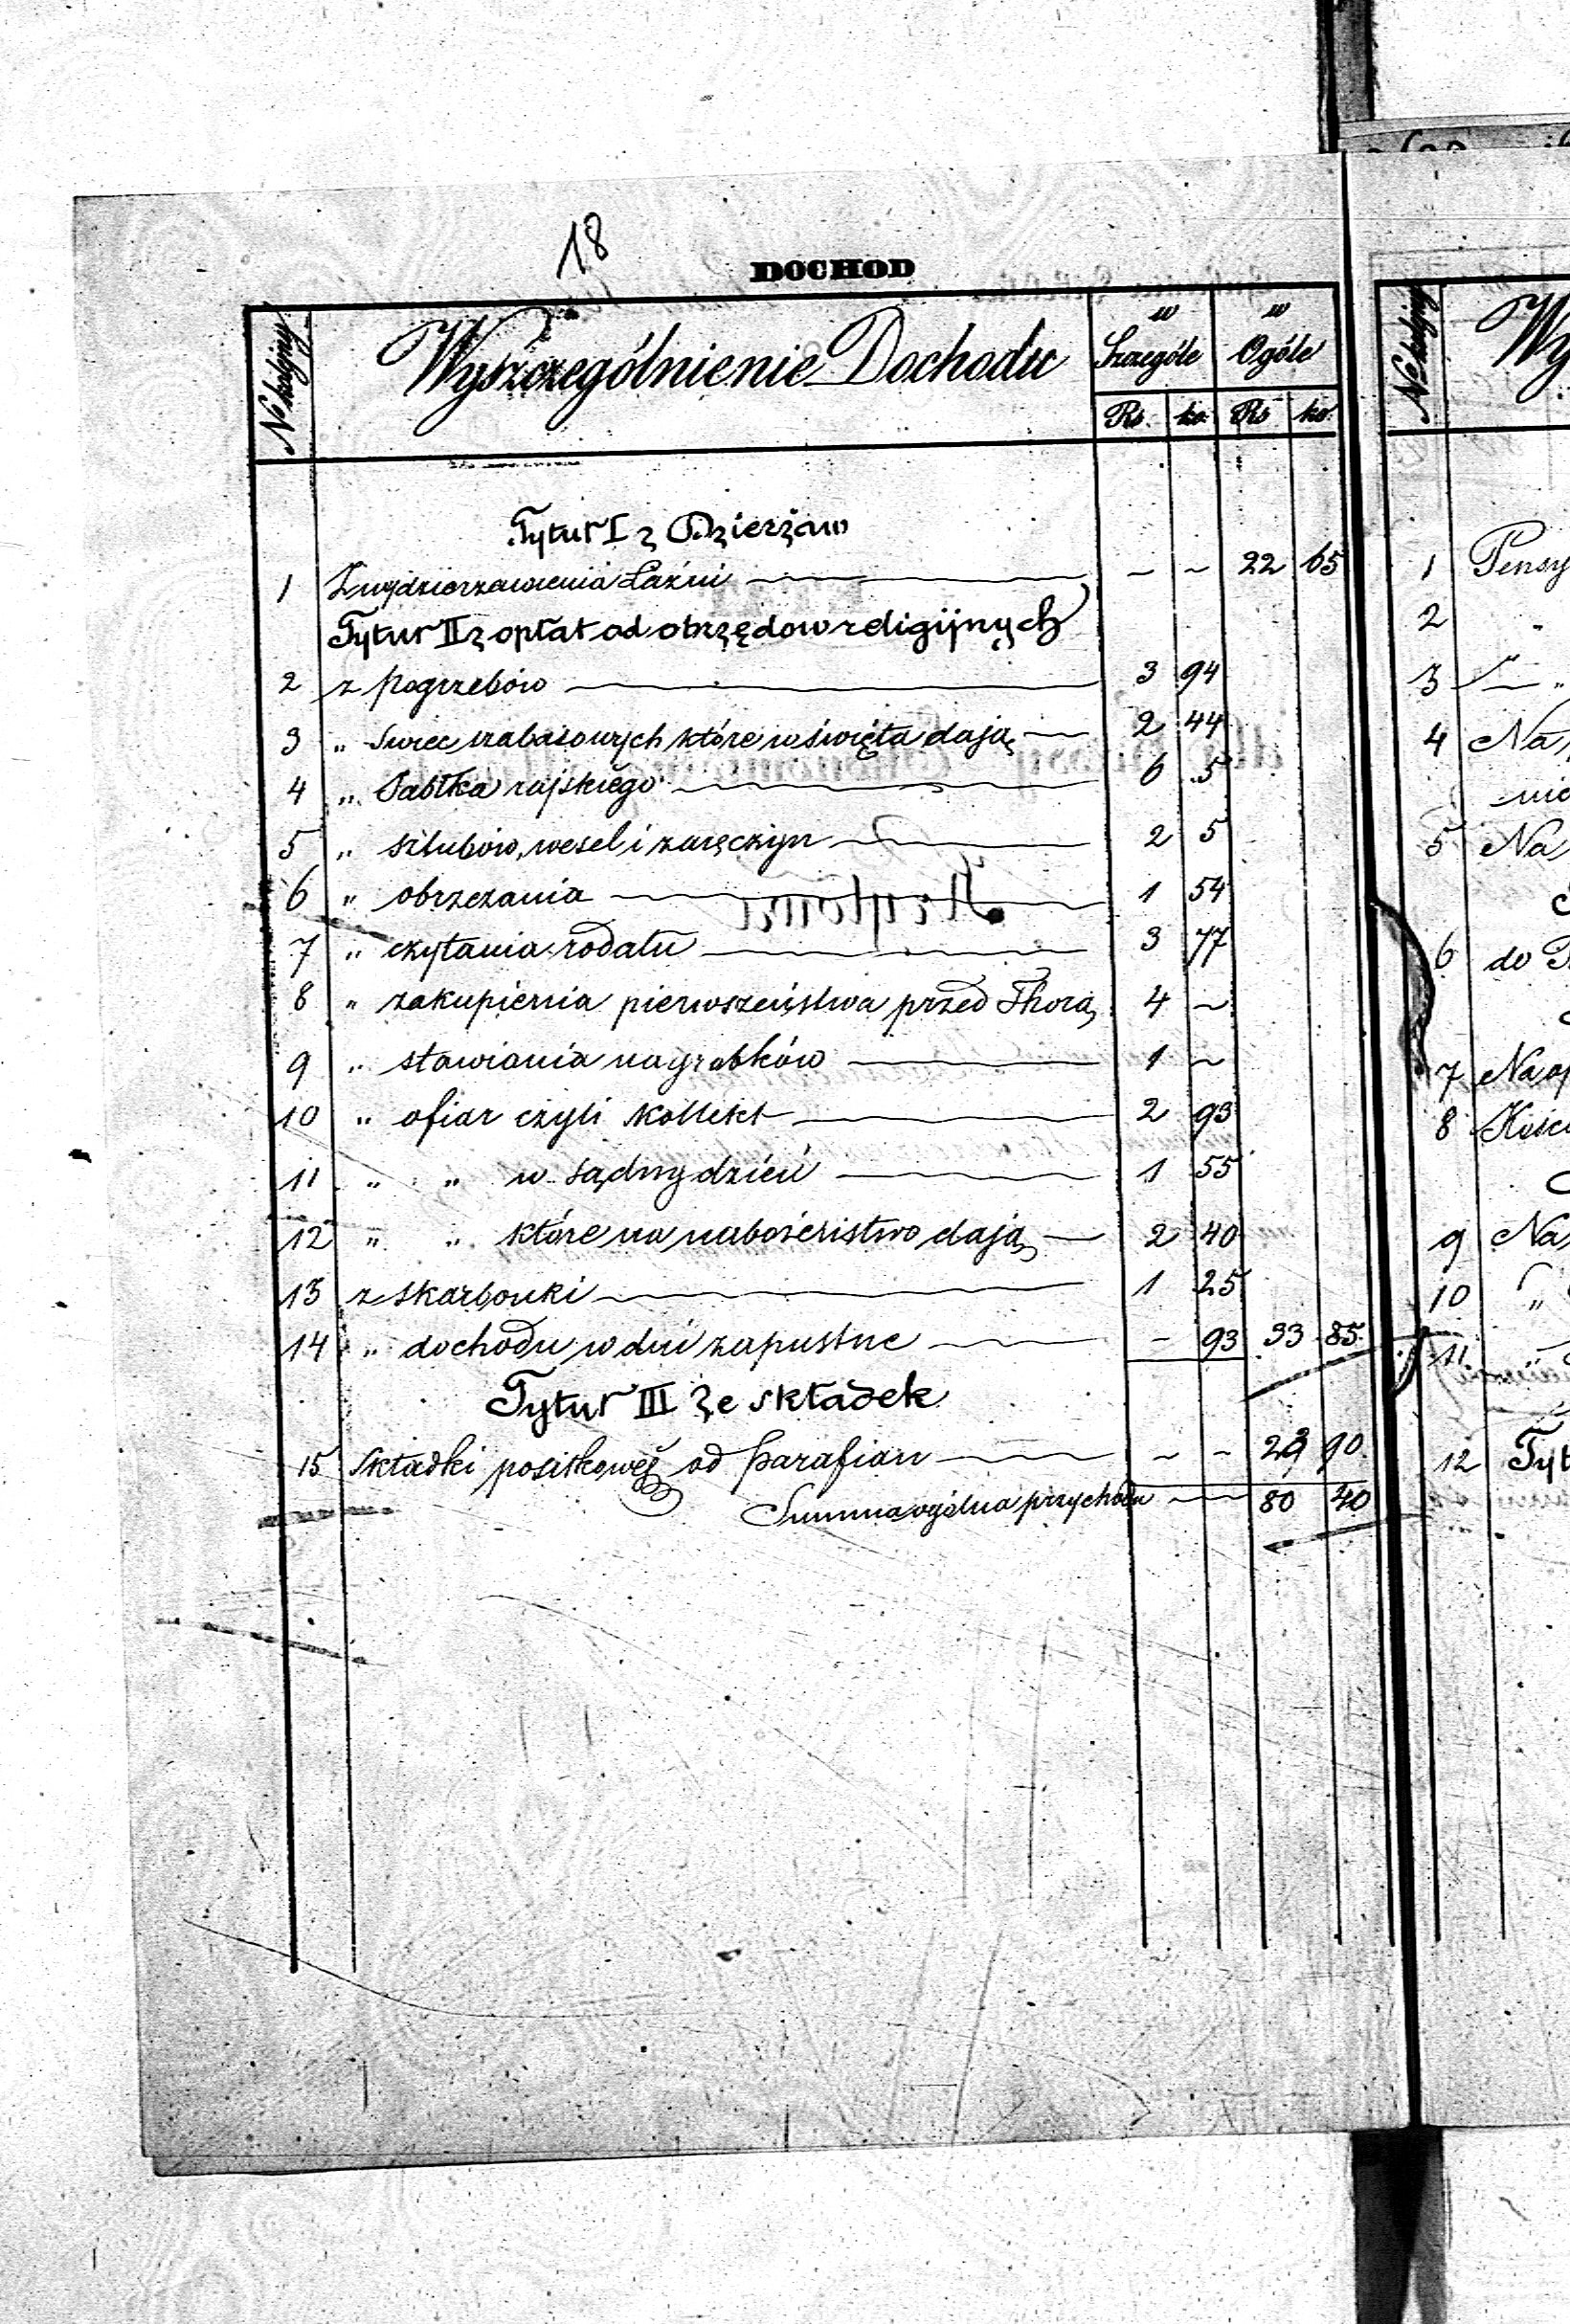 18
DOCHOD
No kolejny Wyszczególnienie Dochodu w Szczególe w Ogóle
Rs. ko. Rs ko.
Tytuł I z Dzierżaw
1 Z wydzierzawienia Łaźni — — 22 65
Tytuł II z opłat od obrzędow religijnych
2 z pogrzebów 3 94
3 „ Swiec szabasowych które w święta dają 2 44
4 „ Jabłka rajskiego 6 5
5 „ szlubów, wesel i zaręczyn 2 5
6 „ obrzezania 1 54
7 „ czytania rodału 3 77
8 „ zakupienia pierwszeństwa przed Thorą 4 ~
9 „ stawiania nagrobków 1 ~
10 „ ofiar czyli kollekt 2 93
11 „ „ w sądny dzień 1 55
12 „ „ które na nabożeństwo dają 2 40
13 z skarbonki 1 25
14 „ dochodu w dni zapustne – 93 33 85
Tytuł III Ze składek
15 Składki posiłkowej od parafian ~ ~ 23 90
Summa ogólna przychodu 80 40
No kolejny Wy
1 Pensy
2 „
3 „
4 Na
nie
5 Na
6 do
7 Na op
8 Kości
9 Na
10 „
11
12 Tyt